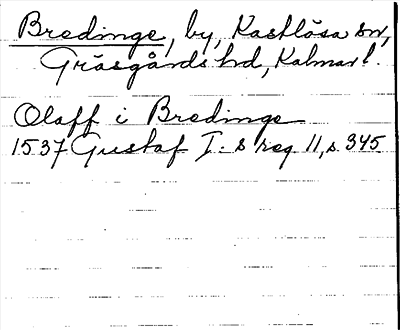 Bredinge, by, Kastlösa sn,
Gräsgårds hd, Kalmar l.
Olaff i Bredinge
1537 Gustaf I:s reg 11, s. 345